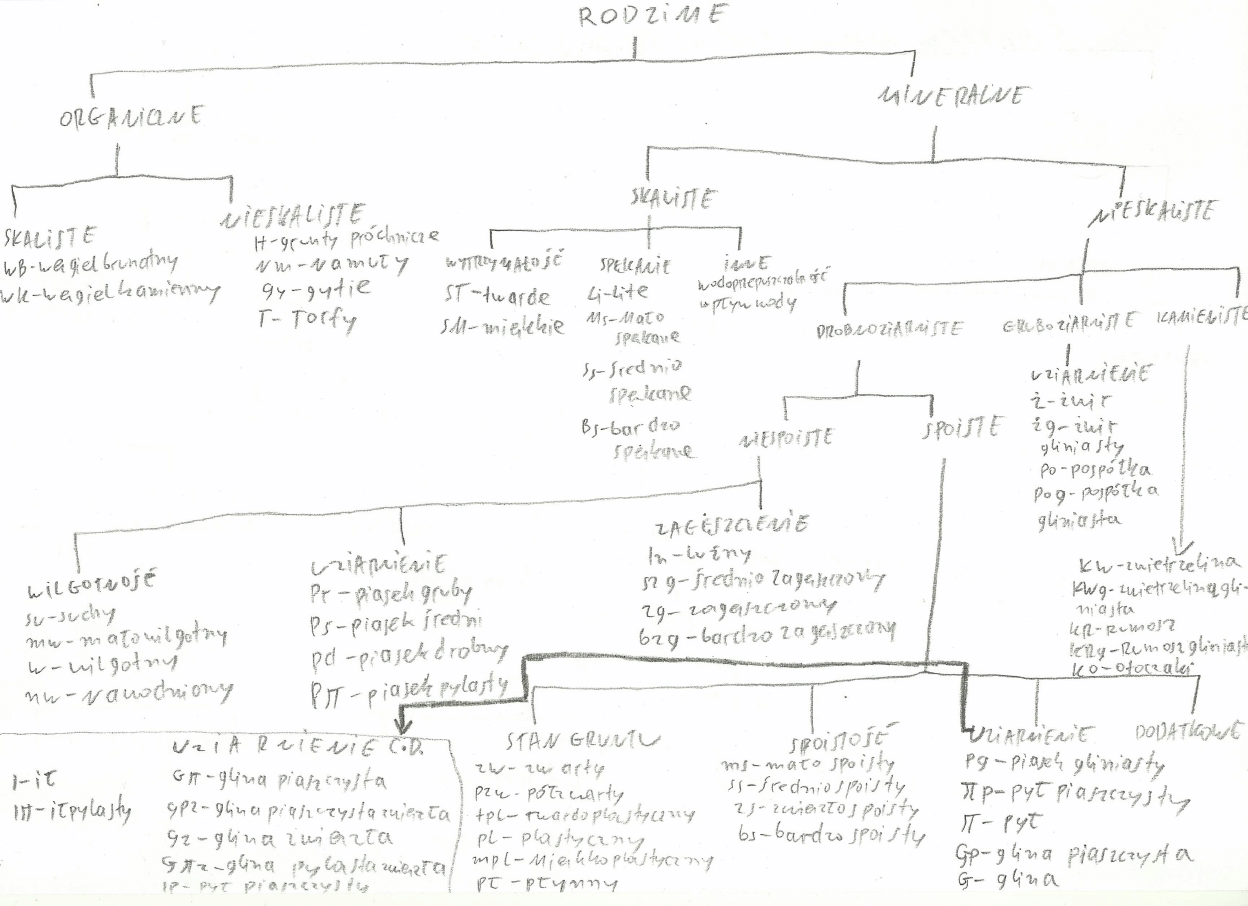 RODZiME
ORGANICZNE
MINERALNE
SKALiSTE
NiESKALiSTE
SKALiSTE
WB-węgiel brunatny
WK-węgiel kamienny
NiESKALiSTE
H-grunty próchnicze
Nm-Namuły
Gy-gytie
T-Torfy
WYTRZYMAŁOŚĆ
ST-twarde
SM-miękkie
SPĘKANIE
Li-lite
Ms-Mało
spękane
Ss-średnio
spękane
Bs-bardzo
spękane
iNNE
wodoprzepuszczalność
wpływ wody
DROBNOZiARNiSTE
GRUBOZiARNiSTE
KAMIENiSTE
UZiARNiENiE
ż-żwir
żg-żwir
gliniasty
Po-pospółka
Pog-pospółka
gliniasta
NiESPOiSTE
SPOiSTE
KW-zwietrzelina
KWg-zwietrzelina gli-
niasta
KR-Rumosz
KRg-Rumosz gliniasta
KO-Otoczaki
WiLGOTNOŚĆ
su-suchy
mw-mało wilgotny
w-wilgotny
nw-Nawodniony
UZiARNiENiE
Pr-piasek gruby
Ps-piasek średni
Pd-piasek drobny
Pπ-piasek pylasty
ZAGĘSZCZENiE
ln-luźny
szg-średnio zagęszczony
zg-zagęszczony
bzg-bardzo zagęszczony
UZiARNiENiE C.D.
I-ił
Iπ-ił pylasty
Gπ-glina piaszczysta
Gpz-glina piaszczysta zwięzła
Gz-glina zwięzła
Gπz-glina pylasta zwięzła
Ip-pył piaszczysty
STAN GRUNTU
zw-zwarty
pzw-półzwarty
tpl-twardoplastyczny
pl-plastyczny
mpl-Miękkoplastyczny
pł-płynny
SPOiSTOŚĆ
ms-mało spoisty
ss-średnio spoisty
zs-zwięzło spoisty
bs-bardzo spoisty
UZiARNiENiE
Pg-piasek gliniasty
πp-pył piaszczysty
π-pył
Gp-glina piaszczysta
G-glina
DODATKOWE